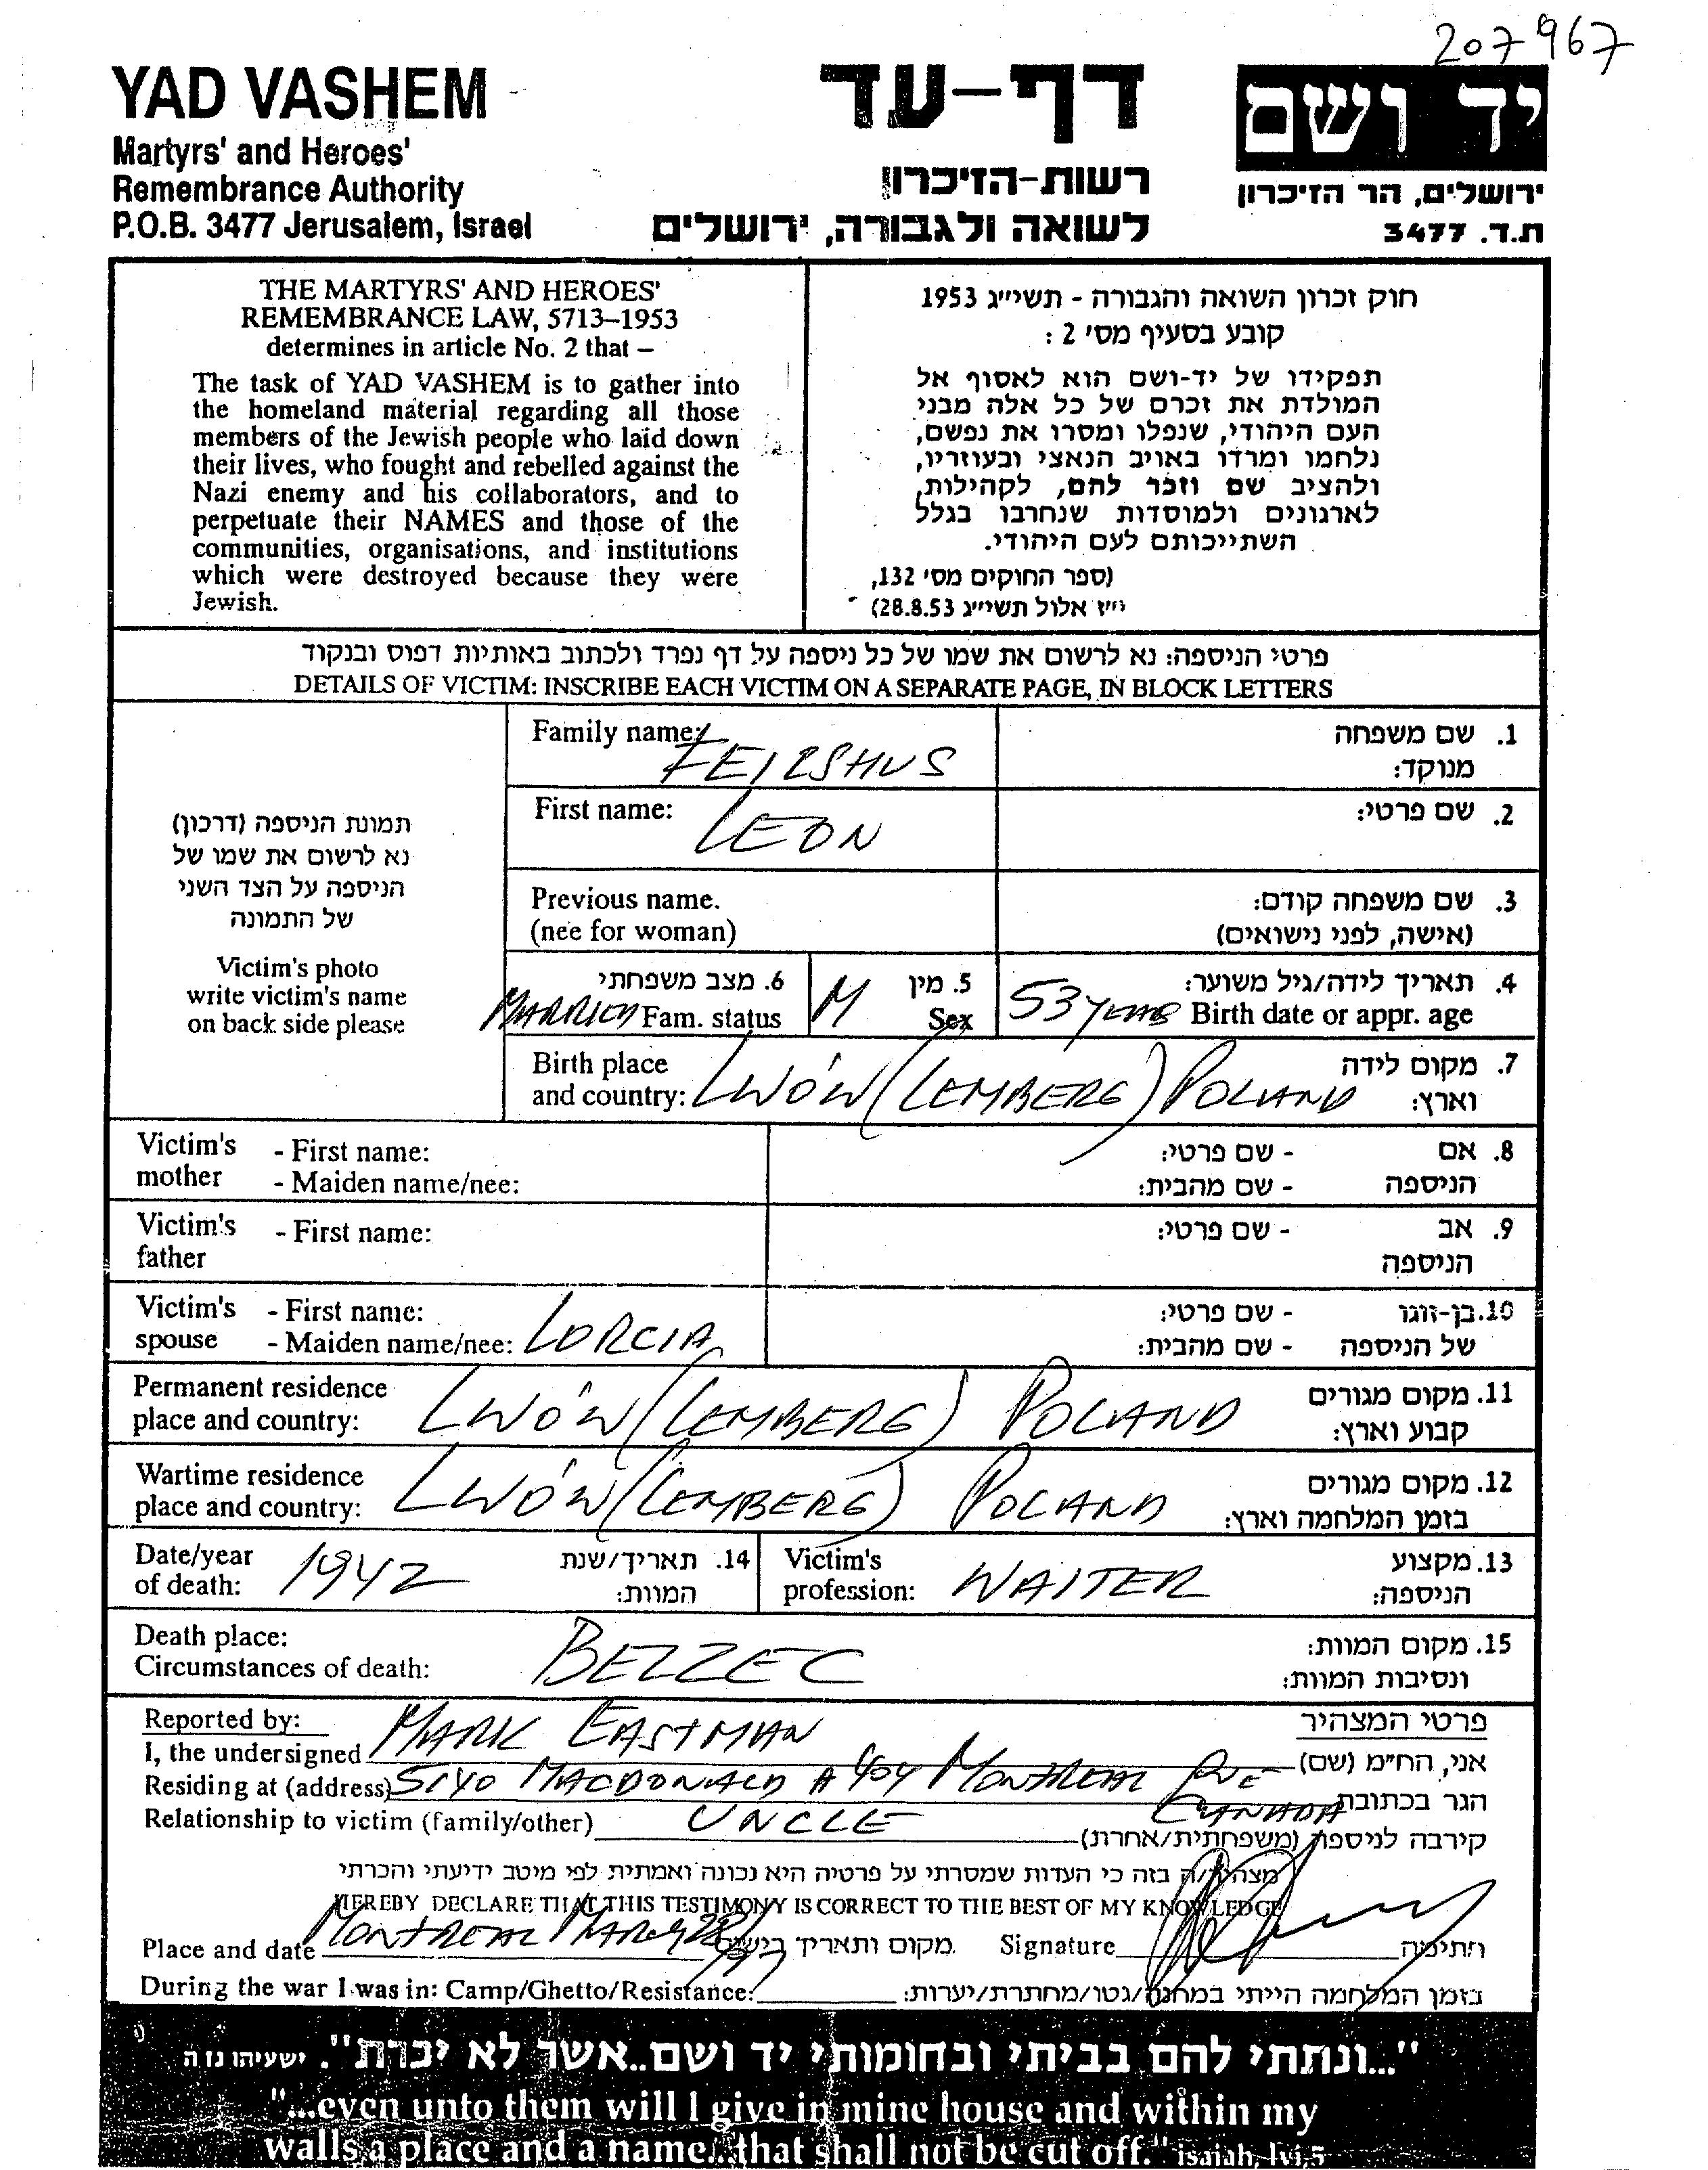 207967
YAD VASHEM
Martyrs' and Heroes'
Remembrance Authority
P.O.B. 3477 Jerusalem, Israel
דף-עד
רשות-הזיכרון
לשואה ולגבורה, ירושלים
יד ושם
ירושלים, הר הזיכרון
ת.ד. 3477
THE MARTYRS' AND HEROES'
REMEMBRANCE LAW, 5713–1953
determines in article No. 2 that –
The task of YAD VASHEM is to gather into
the homeland material regarding all those
members of the Jewish people who laid down
their lives, who fought and rebelled against the
Nazi enemy and his collaborators, and to
perpetuate their NAMES and those of the
communities, organisations, and institutions
which were destroyed because they were
Jewish.
חוק זכרון השואה והגבורה - תשי״ג 1953
קובע בסעיף מס' 2 :
תפקידו של יד-ושם הוא לאסוף אל
המולדת את זכרם של כל אלה מבני
העם היהודי, שנפלו ומסרו את נפשם,
נלחמו ומרדו באויב הנאצי ובעוזריו,
ולהציב שם וזכר להם, לקהילות,
לארגונים ולמוסדות שנחרבו בגלל
השתייכותם לעם היהודי.
(ספר החוקים מס' 132,
י״ז אלול תשי״ג 28.8.53)
פרטי הניספה: נא לרשום את שמו של כל ניספה על דף נפרד ולכתוב באותיות דפוס ובנקוד
DETAILS OF VICTIM: INSCRIBE EACH VICTIM ON A SEPARATE PAGE, IN BLOCK LETTERS
תמונת הניספה (דרכון)
נא לרשום את שמו של
הניספה על הצד השני
של התמונה
Victim's photo
write victim's name
on back side please
Family name: FEILSHUS 1. שם משפחה
מנוקד:
First name: LEON 2. שם פרטי:
Previous name. 3. שם משפחה קודם:
(nee for woman) (אישה, לפני נישואים)
6. מצב משפחתי 5. מין 4. תאריך לידה/גיל משוער:
MARRIED Fam. status M Sex 53 years Birth date or appr. age
Birth place 7. מקום לידה
and country: LWÓW (LEMBERG) POLAND וארץ:
Victim's - First name: - שם פרטי: 8. אם
mother - Maiden name/nee: - שם מהבית: הניספה
Victim's - First name: - שם פרטי: 9. אב
father הניספה
Victim's - First name: - שם פרטי: 10. בן-זוגו
spouse - Maiden name/nee: LORCIA - שם מהבית: של הניספה
Permanent residence 11. מקום מגורים
place and country: LWÓW (LEMBERG) POLAND קבוע וארץ:
Wartime residence 12. מקום מגורים
place and country: LWÓW (LEMBERG) POLAND בזמן המלחמה וארץ:
Date/year 1942 14. תאריך/שנת Victim's 13. מקצוע
of death: המוות: profession: WAITER הניספה:
Death place: 15. מקום המוות:
Circumstances of death: BELZEC ונסיבות המוות:
Reported by: פרטי המצהיר
I, the undersigned MARK EASTMAN אני, החי״מ (שם)
Residing at (address) 5140 MACDONALD # 404 MONTREAL QUE CANADA הגר בכתובת
Relationship to victim (family/other) UNCLE קירבה לניספה (משפחתית/אחרת)
מצהיר/ה בזה כי העדות שמסרתי על פרטיה היא נכונה ואמתית לפי מיטב ידיעתי והכרתי
HEREBY DECLARE THAT THIS TESTIMONY IS CORRECT TO THE BEST OF MY KNOWLEDGE
Place and date MONTREAL 28/97 מקום ותאריך Signature חתימה
During the war I was in: Camp/Ghetto/Resistance: בזמן המלחמה הייתי במחנה/גטו/מחתרת/יערות:
"...ונתתי להם בביתי ובחומותי יד ושם..אשר לא יכרת". ישעיהו נו ה
"...even unto them will I give in mine house and within my
walls a place and a name...that shall not be cut off." isaiah, lvi,5